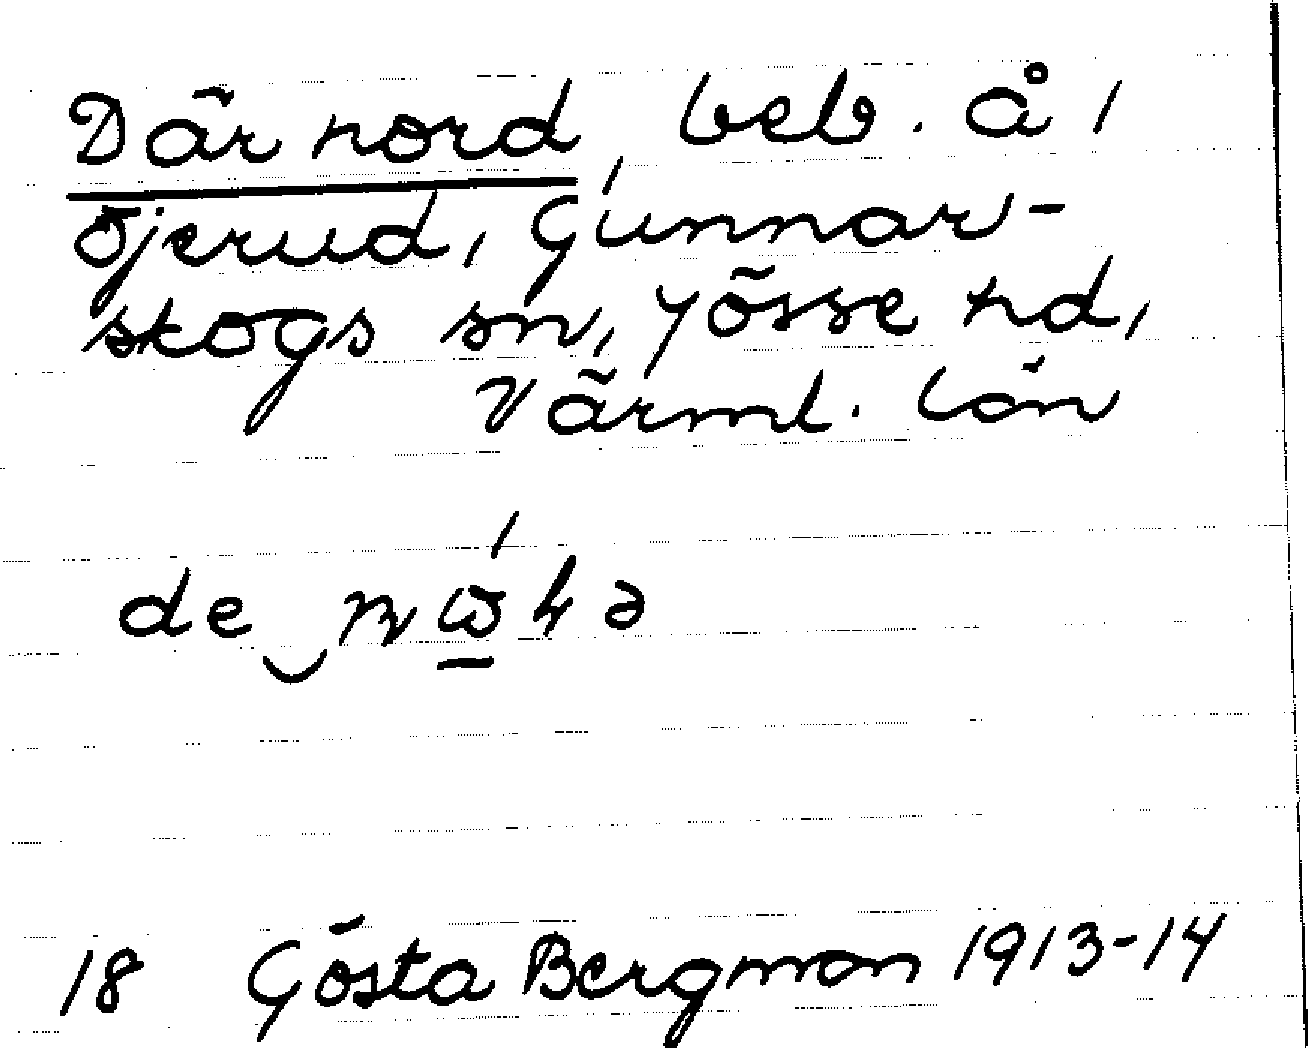 Där nord, beb. å,
Öjerud, Gunnar-
skogs sn, Jösse hd,
Värml. län
18 Gösta Bergman 1913-14